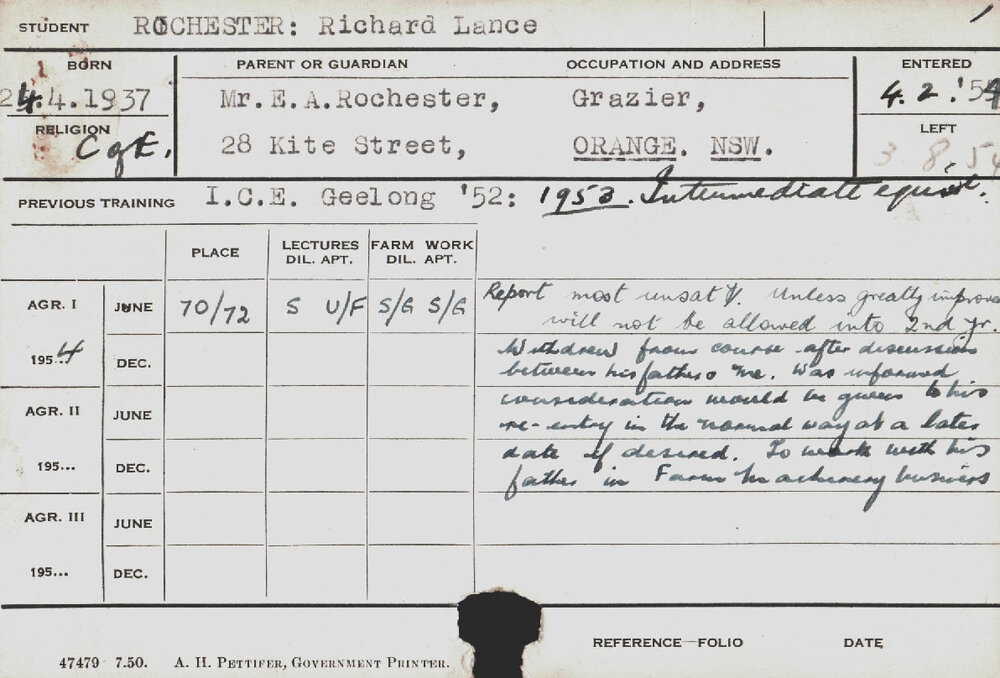 STUDENT ROCHESTER: Richard Lance
BORN PARENT OR GUARDIAN OCCUPATION AND ADDRESS ENTERED
24.4.1937 Mr.E.A.Rochester, Grazier, 4.2.'54
RELIGION LEFT
C of E. 28 Kite Street, ORANGE. NSW. 3 8.54
PREVIOUS TRAINING I.C.E. Geelong '52: 1953. Intermediate equiv't.
PLACE LECTURES FARM WORK
DIL. APT. DIL. APT.
AGR. I JUNE 70/72 S U/F S/G S/G Report most unsat'y. Unless greatly improved
will not be allowed into 2nd yr.
1954 DEC. Withdrew from course after discussion
between his father & me. Was informed
AGR. II JUNE consideration would be given to his
re-entry in the normal way at a later
195... DEC. date if desired. To work with his
father in Farm Machinery business
AGR. III JUNE
195... DEC.
REFERENCE—FOLIO DATE
47479 7.50. A. H. PETTIFER, GOVERNMENT PRINTER.